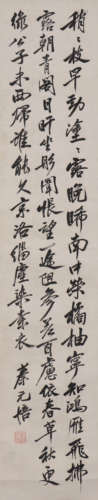 稍〻枝早勁塗〻露晚晞南中榮橘柚寧知鴻雁飛拂
霧朝青閣日旰坐彤闈悵望一途阻參差百慮依春草秋更
綠公子未西歸誰能久京洛緇塵染素衣 蔡元培